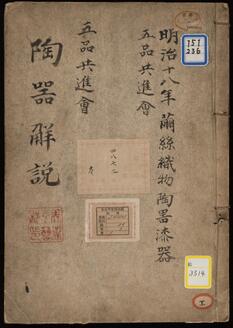 明治十八年繭絲織物陶器漆器
五品共進會
五品共進會
陶器解説
四八七二
151
236
3514
工